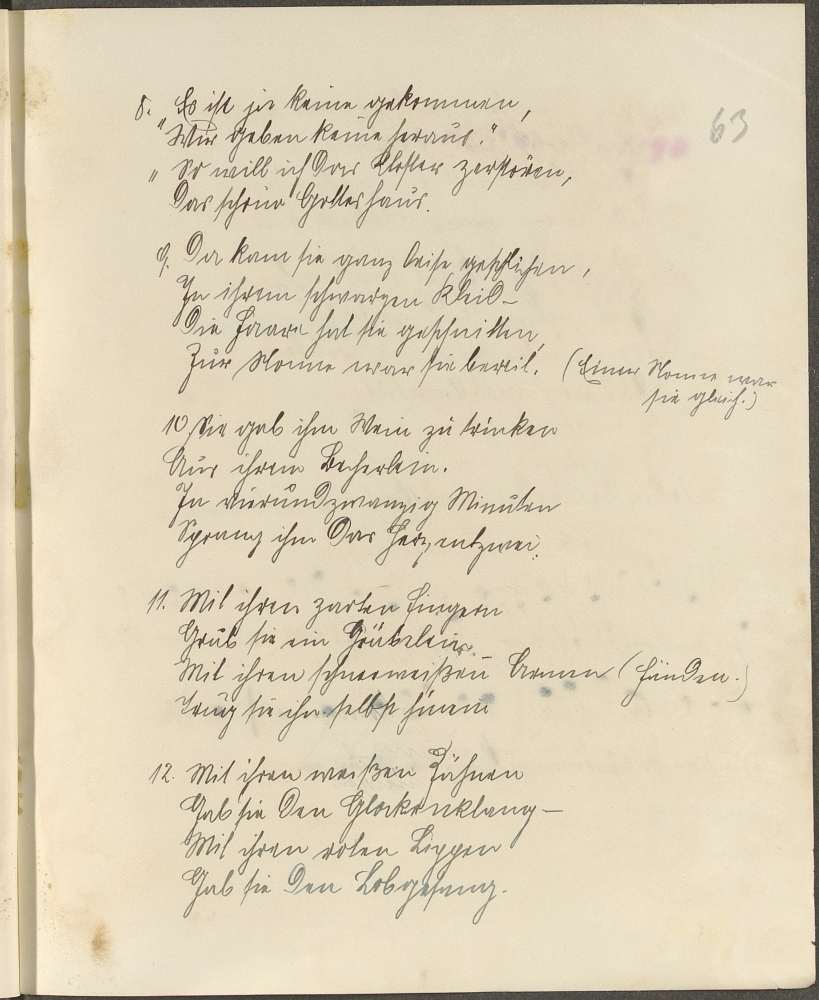 63
8. „Es ist ja keine gekommen,
"Wir geben keine heraus."
„So will ich das Kloster zerstören,
Das schöne Gotteshaus.
9. Da kam sie ganz leise geschlichen,
In ihrem schwarzen Kleid –
Die Haare hat sie geschnitten,
Zur Nonne war sie bereit. (Einer Nonne war
sie gleich.)
10 Sie gab ihm Wein zu trinken
Aus ihrem Becherlein.
In vierundzwanzig Minuten
Sprang ihm das Herz entzwei.
11. Mit ihren zarten Fingern
Grub sie ein Gräbelein,
Mit ihren schneeweißen Armen (Händen.)
Trug sie ihn selbst hinein
12. Mit ihren weißen Zähnen
Gab sie den Glockenklang –
Mit ihren roten Lippen
Gab sie den Lobgesang.